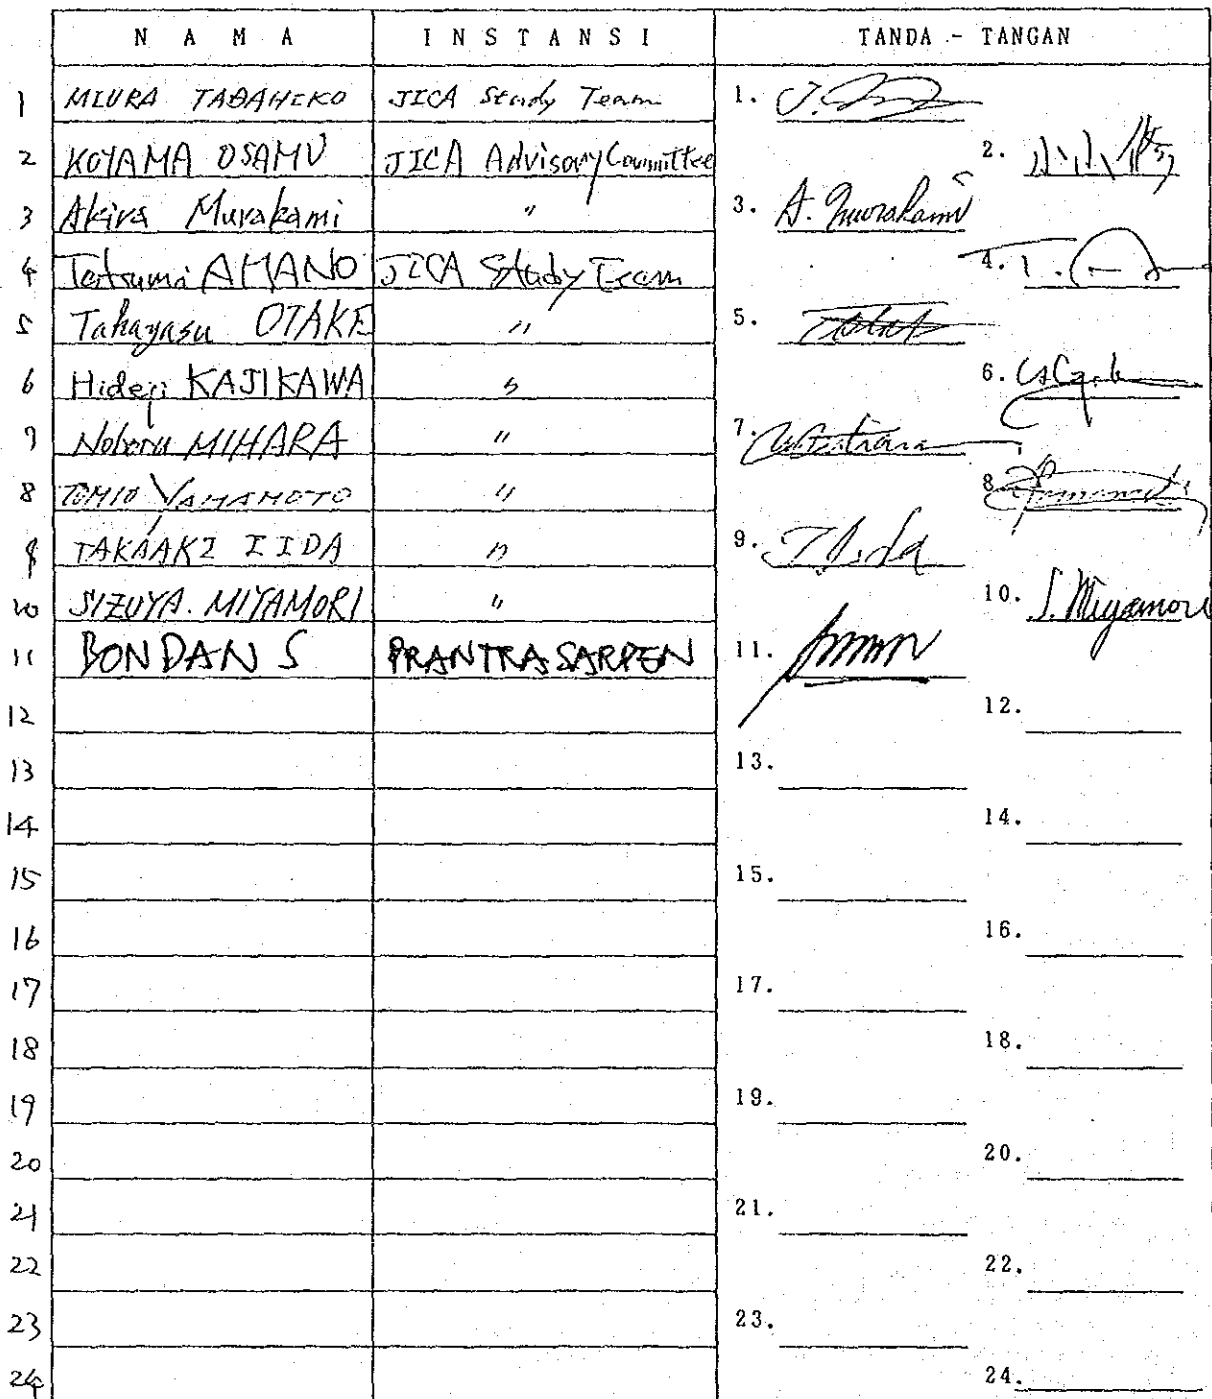 N A M A I N S T A N S I TANDA - TANGAN
1 MIURA TADAHIKO JICA Study Team 1.
2 KOYAMA OSAMU JICA Advisory Committee 2. 小山 修
3 Akira Murakami " 3. A. Murakami
4 Tatsumi AMANO JICA Study Team 4.
5 Takayasu OTAKE " 5.
6 Hideji KAJIKAWA " 6.
7 Noboru MIHARA " 7.
8 TOMIO YAMAMOTO " 8.
9 TAKAAKI IIDA " 9. T. Iida
10 SIZUYA. MIYAMORI " 10. S. Miyamori
11 BONDAN S PRANTRA SARPEN 11.
12 12.
13 13.
14 14.
15 15.
16 16.
17 17.
18 18.
19 19.
20 20.
21 21.
22 22.
23 23.
24 24.